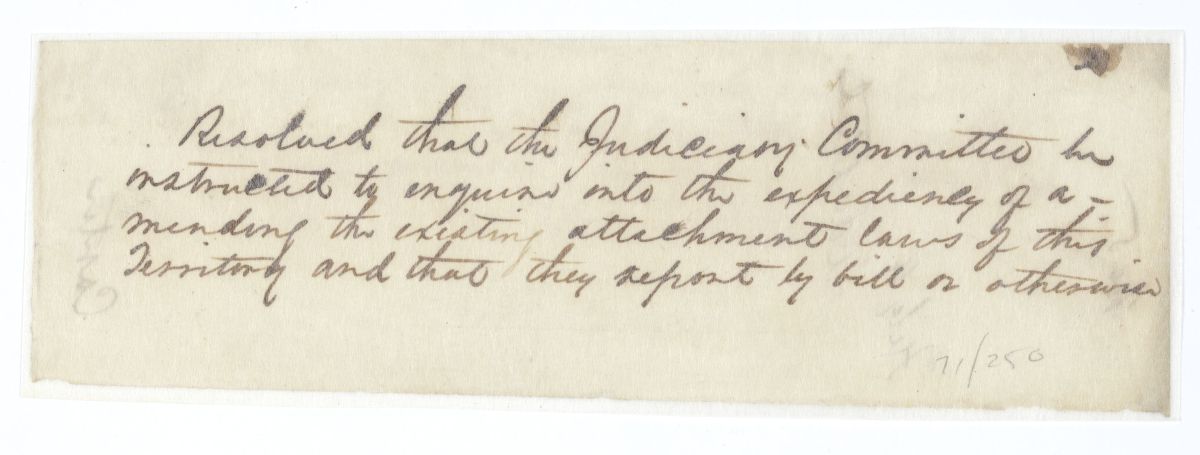 Resolved that the Judiciary Committee be
instructed to enquire into the expediency of a-
mending the existing attachment laws of this
Territory and that they report by bill or otherwise
71/250